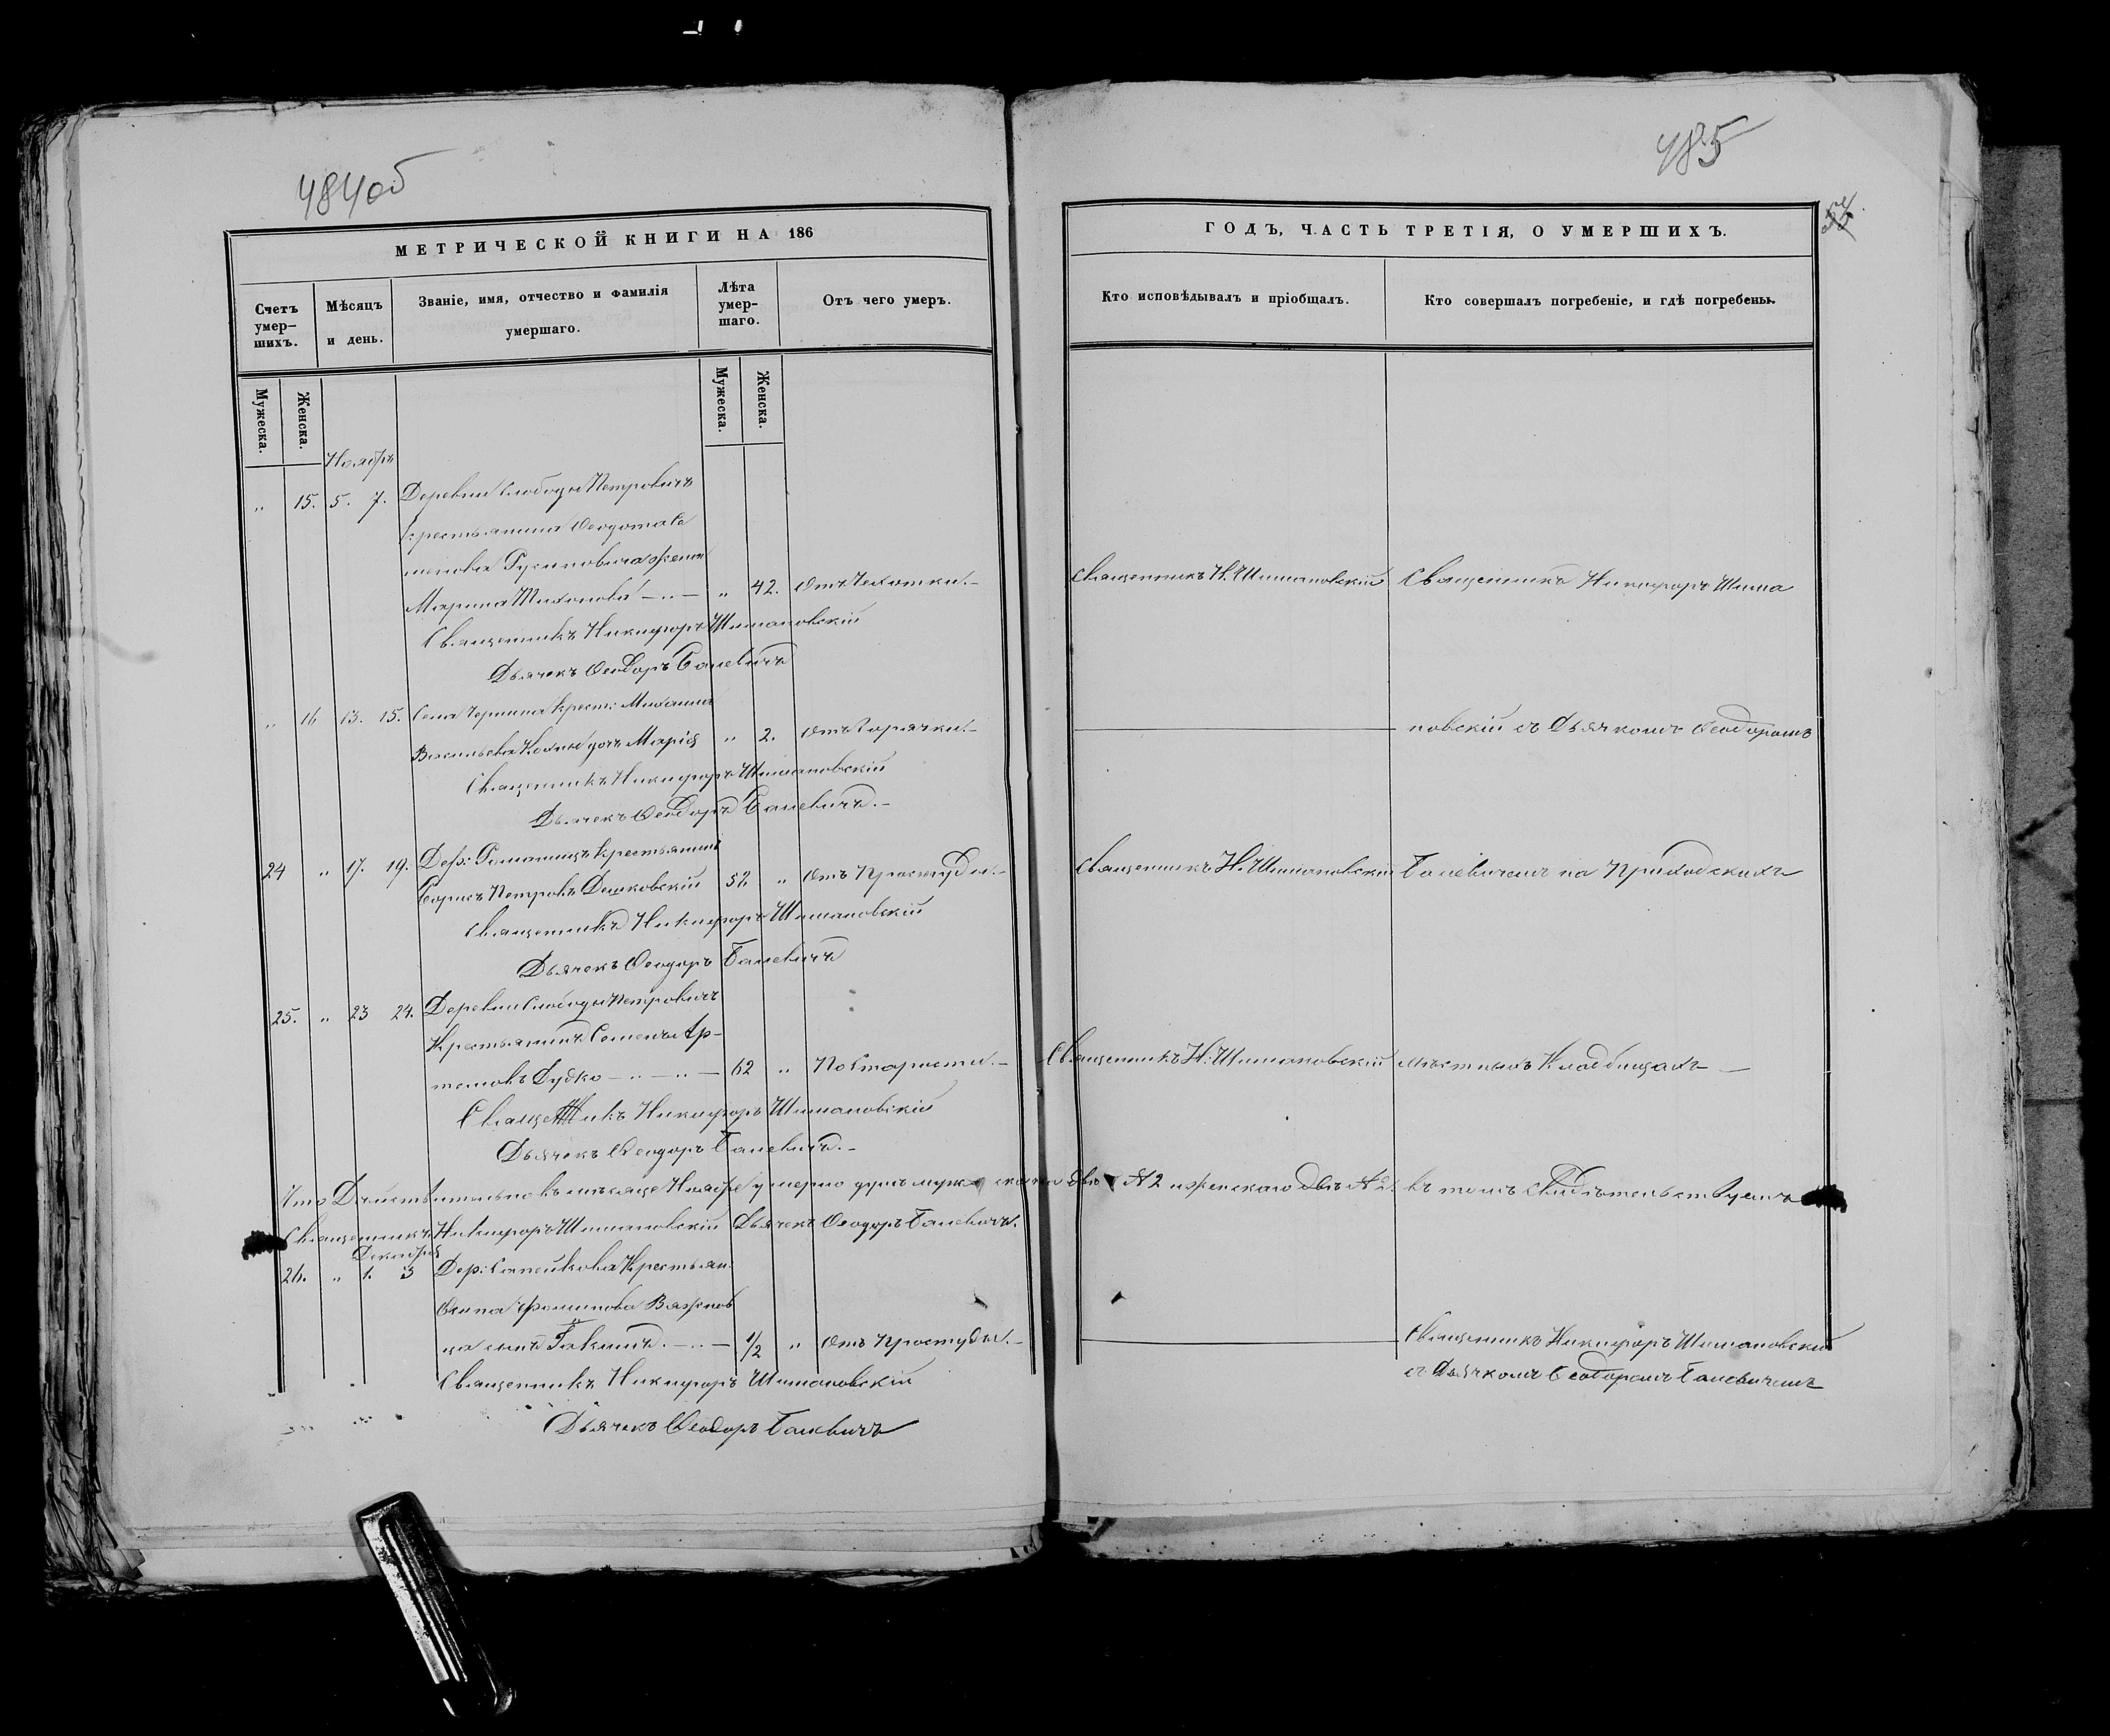 484об
МЕТРИЧЕСКОЙ КНИГИ НА 186
Счетъ умер-шихъ.
Мѣсяцъ и день.
Званіе, имя, отчество и фамилія умершаго.
Лѣта умер-шаго.
Отъ чего умеръ.
Мужеска.
Женска.
Мужеска.
Женска.
Ноябрь
" 15. 5. 7. Деревни Слободы Петровичъ
крестьянина Феодота Се
менова жена
Марина Тихонова " 42. Отъ Чахотки.
Священникъ Никифоръ Шимановскій
Дьячекъ Феодоръ Баневичъ
" 16 13. 15. Села крест: Михаила
Васильева дочь Марія " 2. Отъ Горячки.
Священникъ Никифоръ Шимановскій
Дьячекъ Феодоръ Баневичъ.
24 " 17. 19. Дер: крестьянинъ
Борисъ Петровъ Дешковскій 52. " Отъ Простуды.
Священникъ Никифоръ Шимановскій
Дьячекъ Феодоръ Баневичъ
25. " 23 24. Деревни Слободы Петровичъ
Крестьянинъ Семенъ Ар-
темовъ Дудко 62 " По Старости.
Священникъ Никифоръ Шимановскій
Дьячекъ Феодоръ Баневичъ.
Что Дѣйствительно въ мѣсяце Ноябрѣ умерло душъ мужескаго двѣ № 2 и женскаго двѣ № 2. въ томъ свидѣтельствуемъ
Священникъ Никифоръ Шимановскій Дьячекъ Феодоръ Баневичъ.
Декабря
26. " 1. 3 Дер: Крестьян.
Осипа Фомина
ца сынъ Іакимъ. 1/2 " Отъ Простуды.
Священникъ Никифоръ Шимановскій
Дьячекъ Феодоръ Баневичъ
485
ГОДЪ, ЧАСТЬ ТРЕТІЯ, О УМЕРШИХЪ.
Кто исповѣдывалъ и пріобщалъ.
Кто совершалъ погребеніе, и гдѣ погребены.
Священникъ Н. Шимановскій Священникъ Никифоръ Шима
новскій съ Дьячкомъ Феодоромъ
Священникъ Н. Шимановскій Баневичемъ на Приходскихъ
Священникъ Н: Шимановскій мѣстныхъ Кладбищахъ
Священникъ Никифоръ Шимановскій
съ Дьячкомъ Феодоромъ Баневичемъ